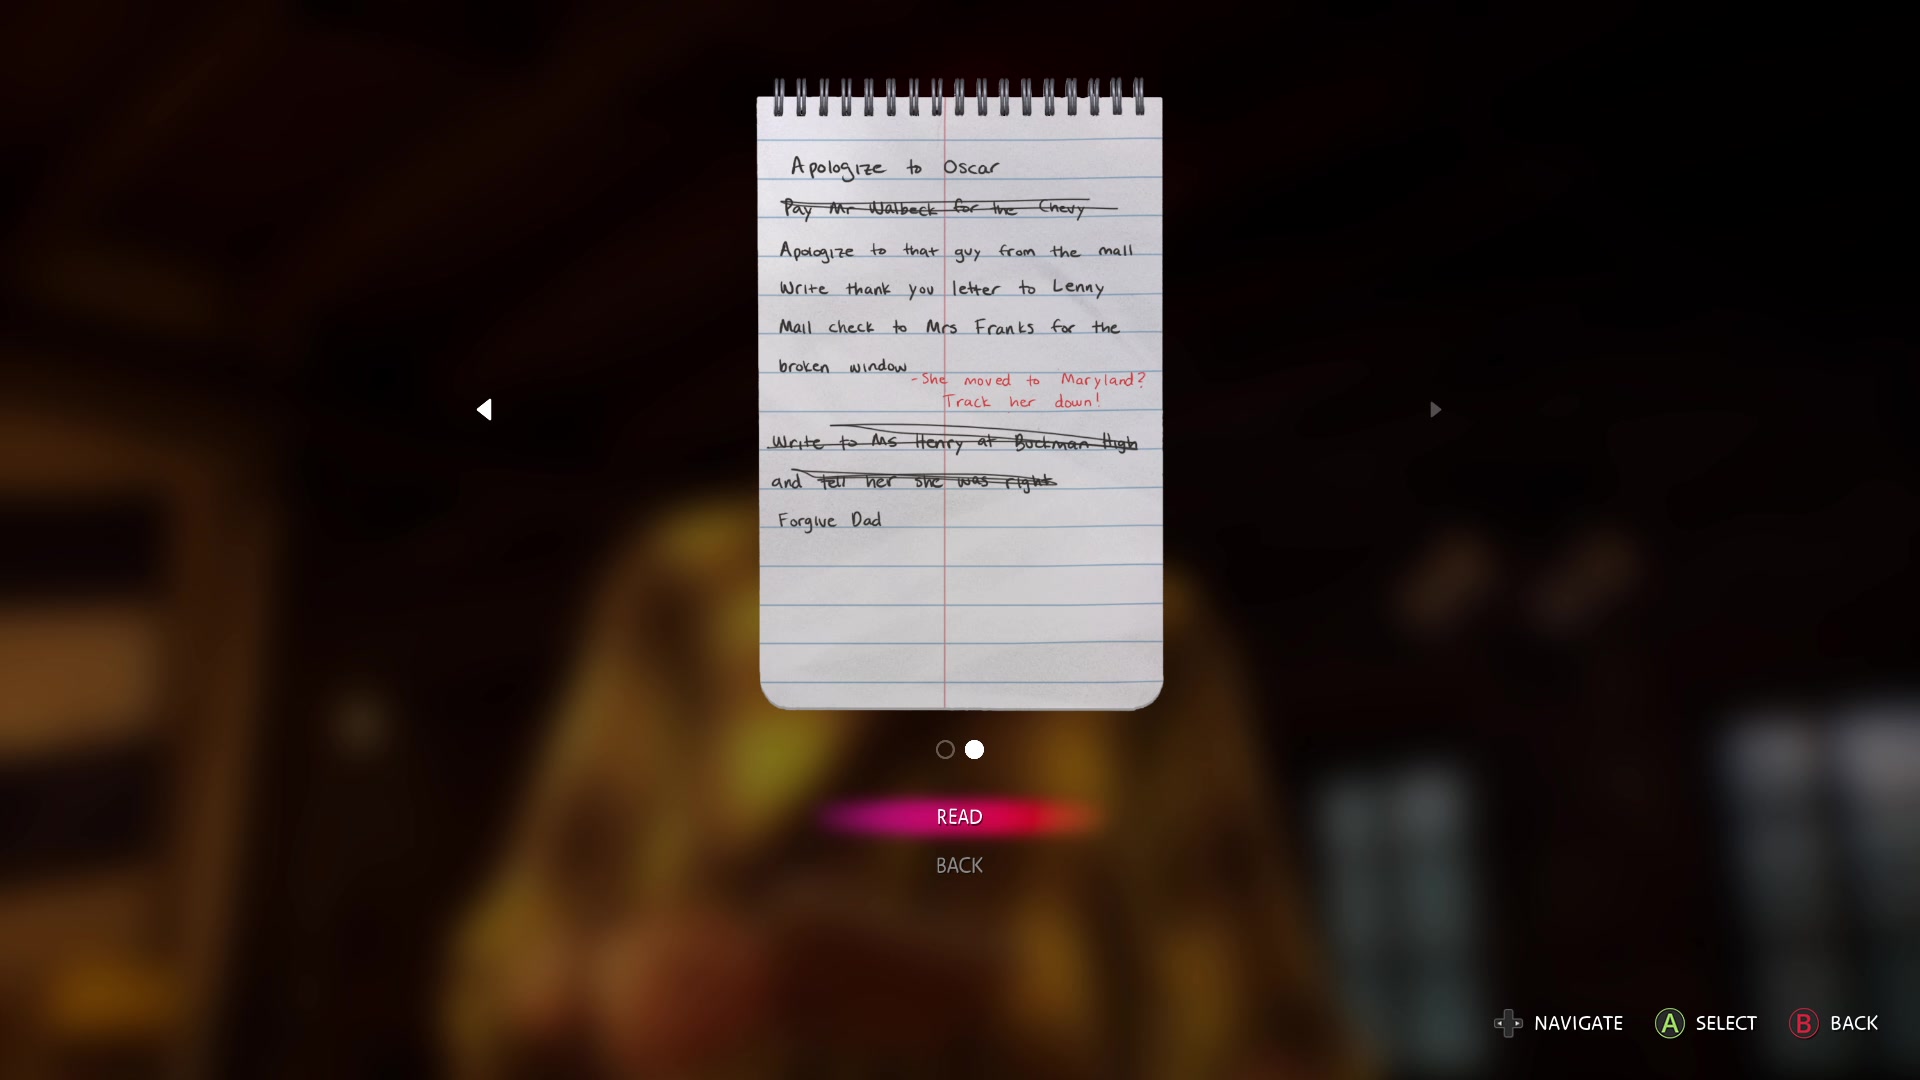 Apologize to Oscar
Pay Mr Walbeck for the Chevy
Apologize to that guy from the mall
Write thank you letter to Lenny
Mail check to Mrs Franks for the
broken window
-She moved to Maryland?
Track her down!
Write to Ms Henry at Buckman High
and tell her she was right
Forgive Dad
READ
BACK
NAVIGATE A SELECT B BACK